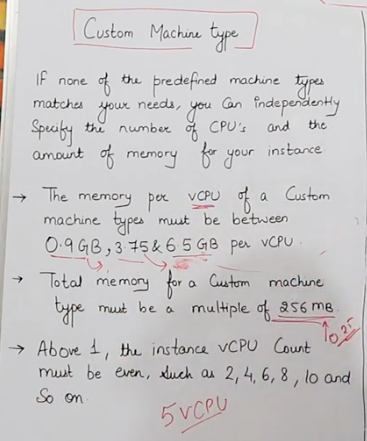 Custom Machine type
IF none of the predefined machine types
matches your needs, you Can independently
Specify the number of CPU's and the
amount of memory for your instance
→ The memory per vCPU of a Custom
machine types must be between
0.9 GB, 3.75 & 6.5 GB per vCPU.
→ Total memory for a Custom machine
type must be a multiple of 256 MB.
0.25
→ Above 1, the instance vCPU Count
must be even, such as 2, 4, 6, 8, 10 and
So on
5 vCPU